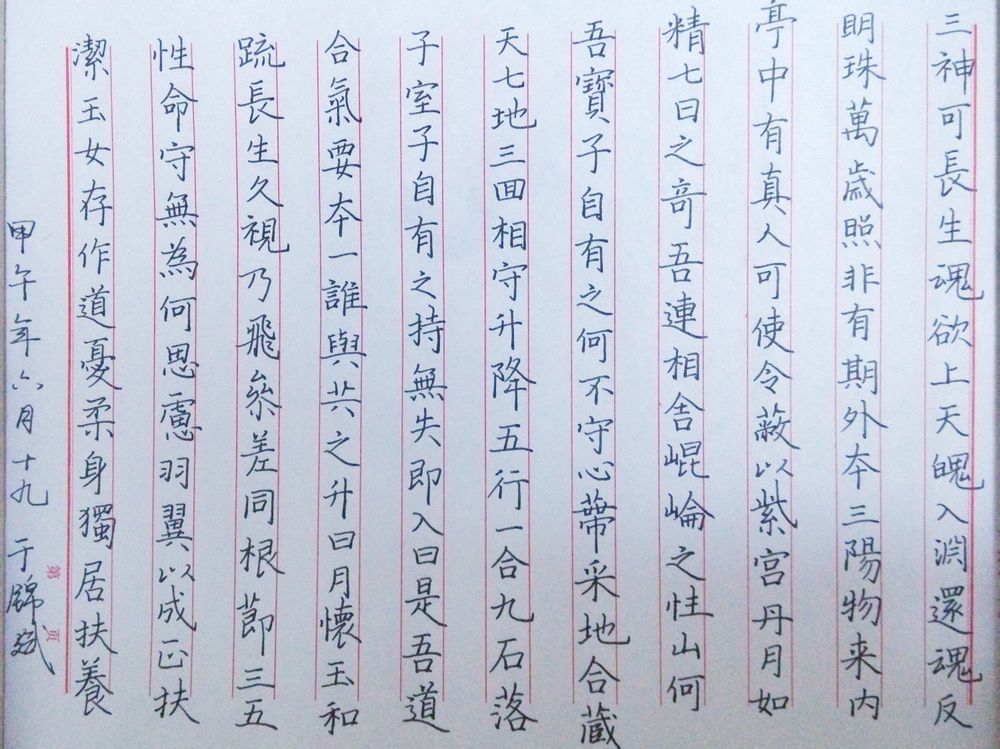 三神可長生魂欲上天魄入淵還魂反
明珠萬歲照非有期外夲三陽物来内
亭中有真人可使令蔽以紫宫丹月如
精七日之奇吾連相舍崐崘之性山何
吾寶子自有之何不守心蔕采地合蔵
天七地三回相守升降五行一合九石落
子室子自有之持無失即入日是吾道
合氣要夲一誰與共之升日月懷玉和
疏長生久視乃飛叅差同根莭三五
性命守無為何思慮羽翼以成正扶
潔玉女存作道憂柔身獨居扶養
甲午年六月十九 于錦斌
第 頁